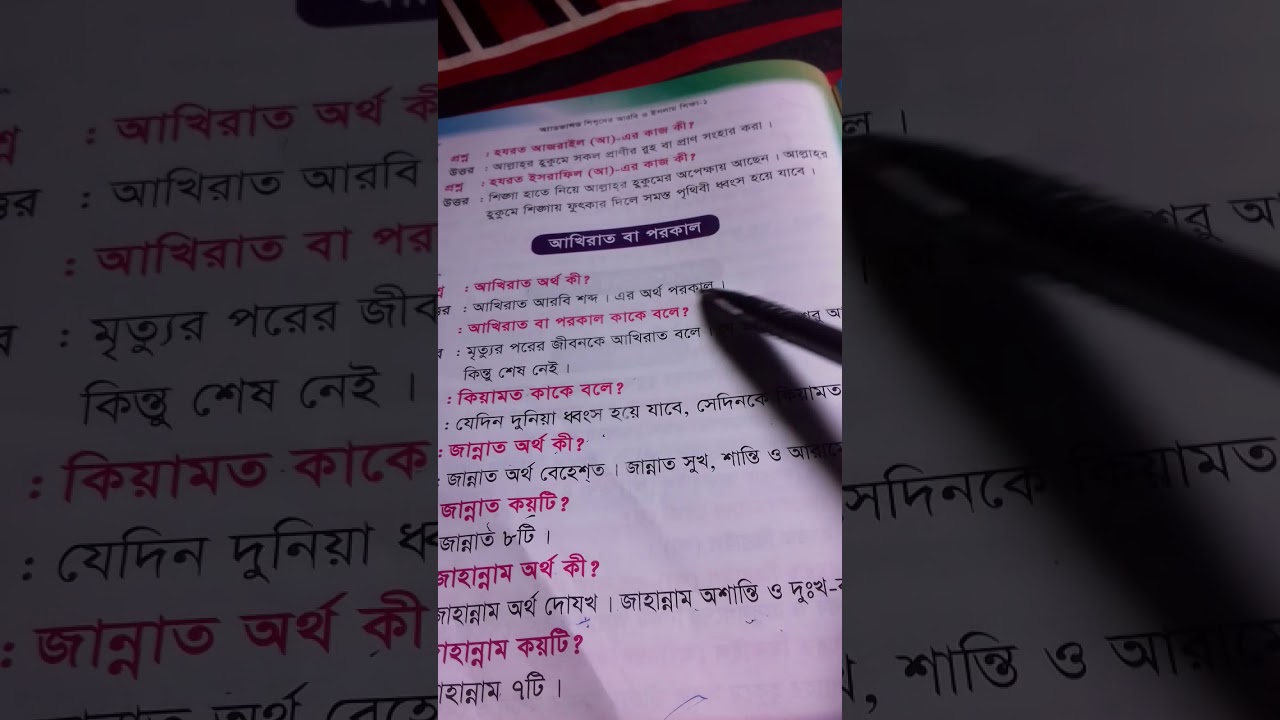 শিশুদের আরবি ও ইসলাম শিক্ষা-১
প্রশ্ন : হযরত আজরাইল (আ)-এর কাজ কী?
উত্তর : আল্লাহর হুকুমে সকল প্রাণীর রূহ বা প্রাণ সংহার করা।
প্রশ্ন : হযরত ইসরাফিল (আ)-এর কাজ কী?
উত্তর : শিঙ্গা হাতে নিয়ে আল্লাহর হুকুমের অপেক্ষায় আছেন। আল্লাহর
হুকুমে শিঙ্গায় ফুৎকার দিলে সমস্ত পৃথিবী ধ্বংস হয়ে যাবে।
আখিরাত বা পরকাল
: আখিরাত অর্থ কী?
: আখিরাত আরবি শব্দ। এর অর্থ পরকাল।
: আখিরাত বা পরকাল কাকে বলে?
: মৃত্যুর পরের জীবনকে আখিরাত বলে
কিন্তু শেষ নেই।
: কিয়ামত কাকে বলে?
: যেদিন দুনিয়া ধ্বংস হয়ে যাবে, সেদিনকে কিয়ামত
: জান্নাত অর্থ কী?
: জান্নাত অর্থ বেহেশ্‌ত। জান্নাত সুখ, শান্তি ও
জান্নাত কয়টি?
জান্নাত ৮টি।
জাহান্নাম অর্থ কী?
জাহান্নাম অর্থ দোযখ। জাহান্নাম অশান্তি ও দুঃখ-
জাহান্নাম কয়টি?
জাহান্নাম ৭টি।